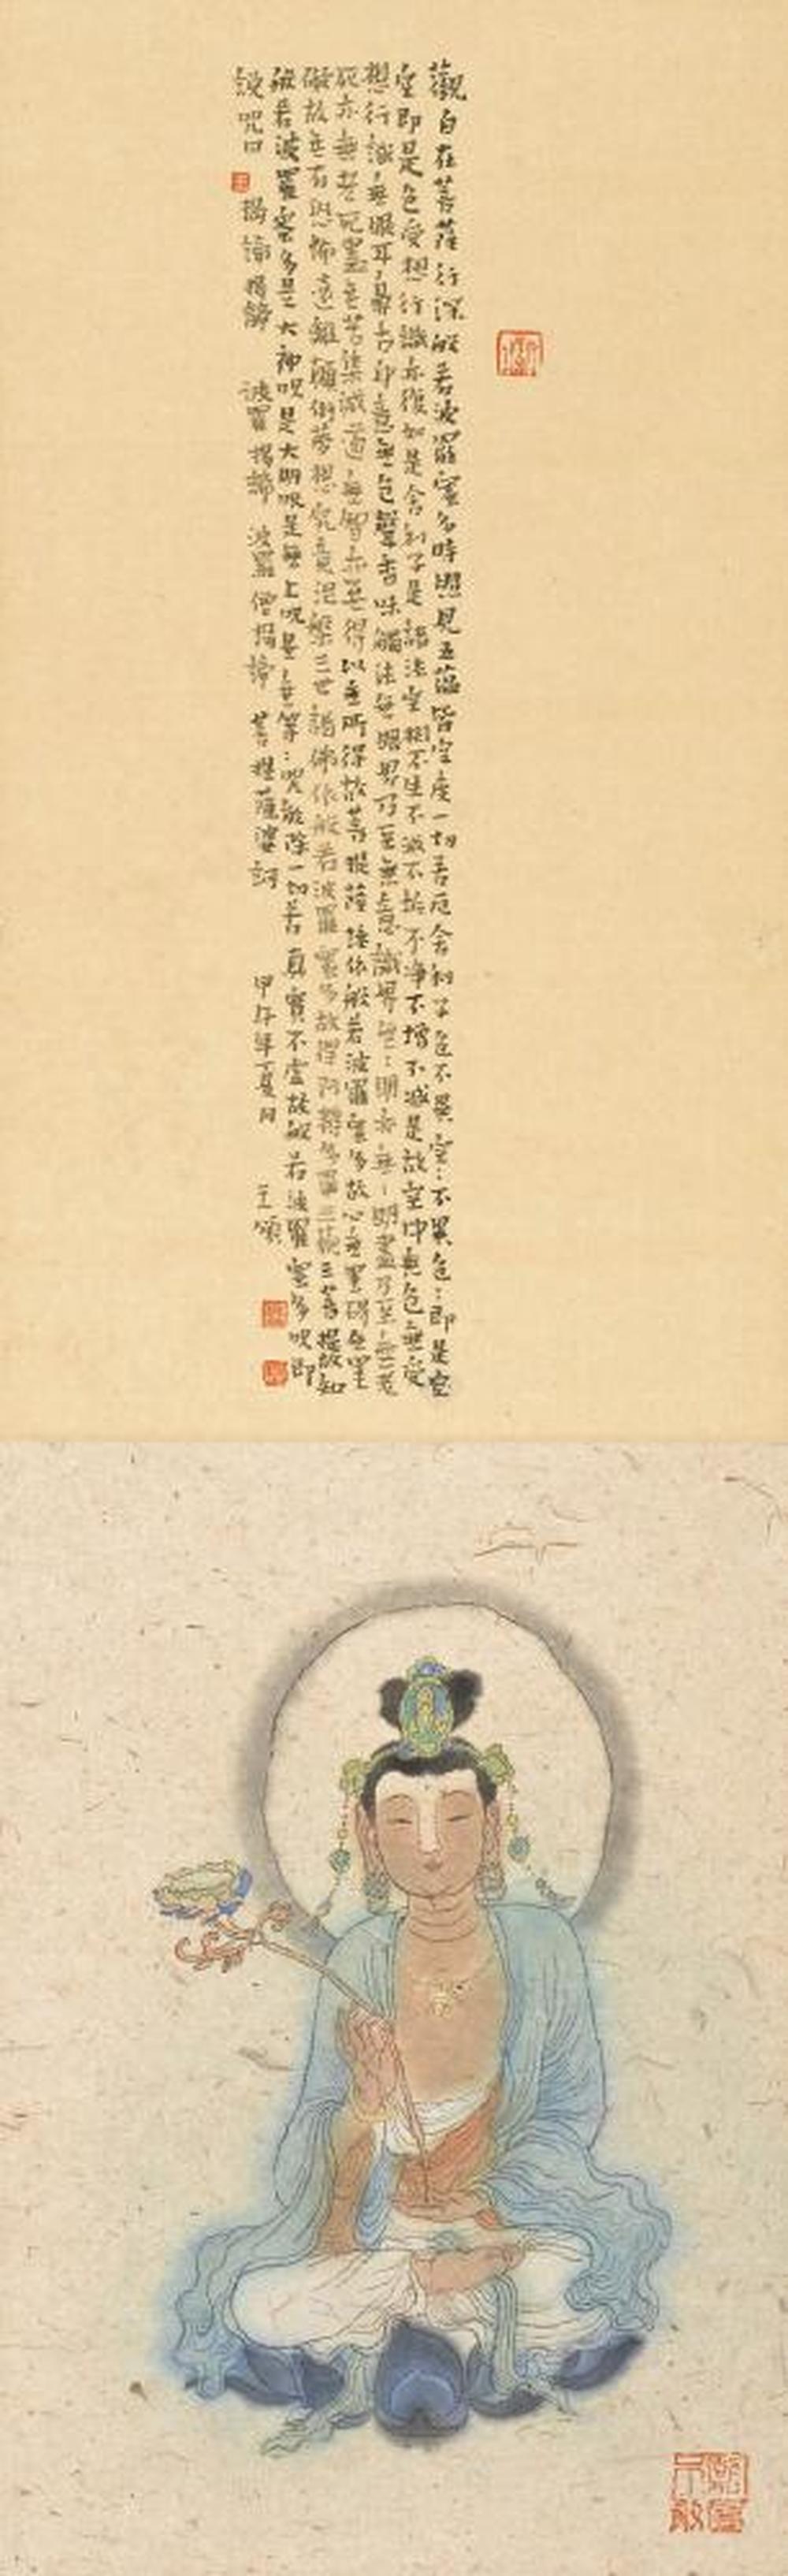 觀自在菩薩行深般若波羅蜜多時照見五蘊皆空度一切苦厄舍利子色不異空:不異色:即是空
空即是色受想行識亦復如是舍利子是諸法空相不生不滅不垢不淨不增不減是故空中無色無受
想行識無眼耳鼻舌身意無色聲香味觸法無眼界乃至無意識界無:明亦無:明盡乃至無老
死亦無老死盡無苦集滅道無智亦無得以無所得故菩提薩埵依般若波羅蜜多故心無罣礙無罣
礙故無有恐怖遠離顛倒夢想究竟涅槃三世諸佛依般若波羅蜜多故得阿耨多羅三藐三菩提故知
般若波羅蜜多是大神咒是大明咒是無上咒是無等:咒能除一切苦真實不虛故般若波羅蜜多咒即
說咒曰 揭諦揭諦 波羅揭諦 波羅僧揭諦 菩提薩婆訶 甲午年夏月 王頌